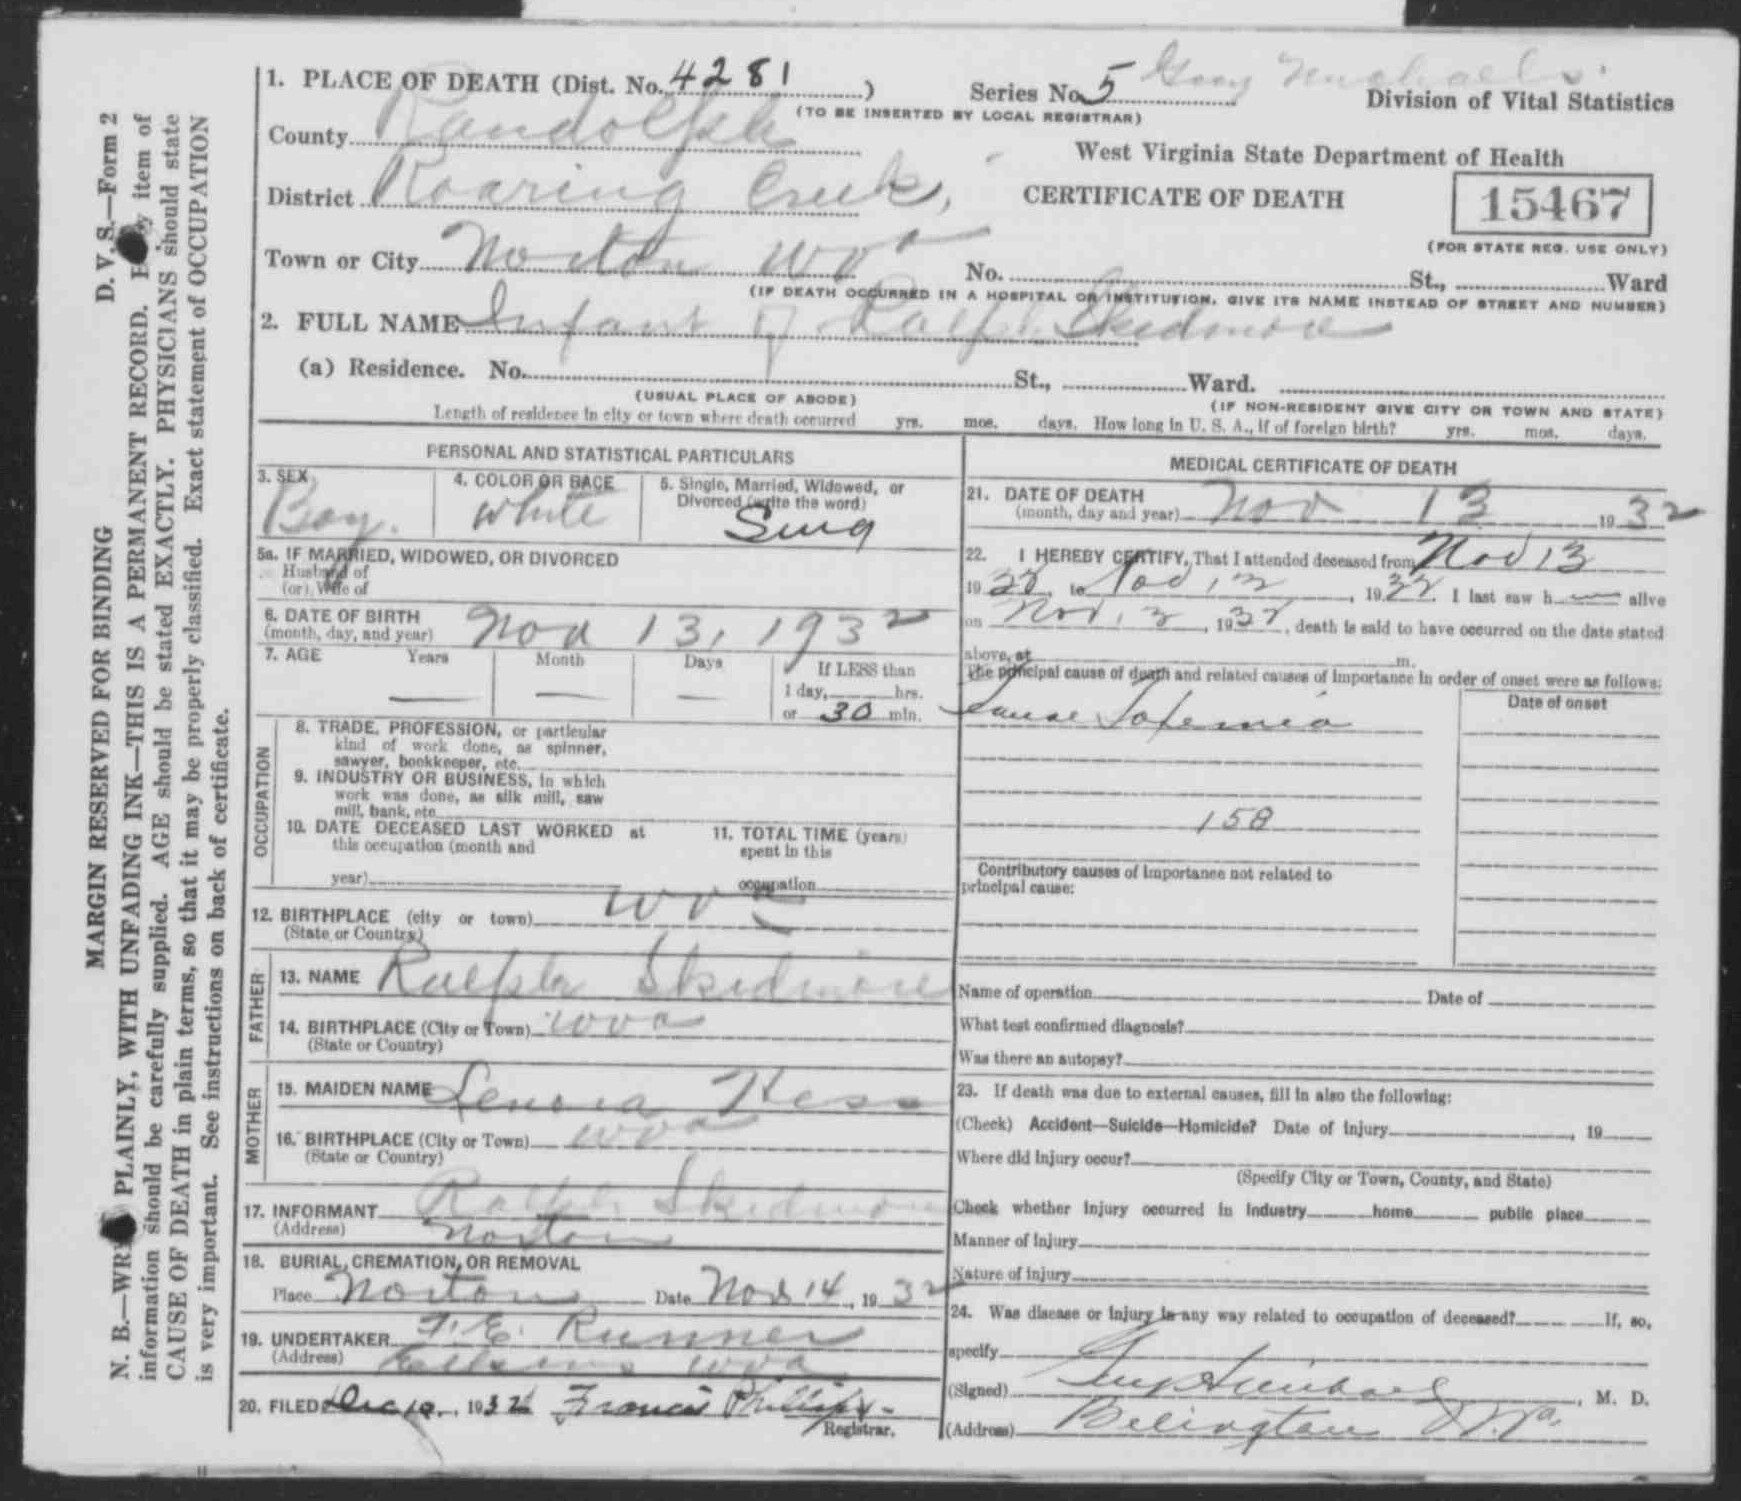 MARGIN RESERVED FOR BINDING D. V. S.—Form 2
N. B.—WRI PLAINLY, WITH UNFADING INK—THIS IS A PERMANENT RECORD. E y item of
information should be carefully supplied. AGE should be stated EXACTLY. PHYSICIANS should state
CAUSE OF DEATH in plain terms, so that it may be properly classified. Exact statement of OCCUPATION
is very important. See instructions on back of certificate.
1. PLACE OF DEATH (Dist. No. 4281) Series No. 5
(TO BE INSERTED BY LOCAL REGISTRAR) Division of Vital Statistics
County Randolph
West Virginia State Department of Health
District Roaring Creek, CERTIFICATE OF DEATH 15467
(FOR STATE REG. USE ONLY)
Town or City Norton WVa No. St., Ward
(IF DEATH OCCURRED IN A HOSPITAL OR INSTITUTION, GIVE ITS NAME INSTEAD OF STREET AND NUMBER)
2. FULL NAME Infant of Ralph Skidmore
(a) Residence. No. St., Ward.
(USUAL PLACE OF ABODE) (IF NON-RESIDENT GIVE CITY OR TOWN AND STATE)
Length of residence in city or town where death occurred yrs. mos. days. How long in U. S. A., if of foreign birth? yrs. mos. days.
PERSONAL AND STATISTICAL PARTICULARS
3. SEX 4. COLOR OR RACE 5. Single, Married, Widowed, or
Divorced (write the word)
Boy. White Sing
5a. IF MARRIED, WIDOWED, OR DIVORCED
Husband of
(or) Wife of
6. DATE OF BIRTH
(month, day, and year) Nov 13, 1932
7. AGE Years Month Days If LESS than
1 day, hrs.
or 30 min.
OCCUPATION
8. TRADE, PROFESSION, or particular
kind of work done, as spinner,
sawyer, bookkeeper, etc.
9. INDUSTRY OR BUSINESS, in which
work was done, as silk mill, saw
mill, bank, etc.
10. DATE DECEASED LAST WORKED at
this occupation (month and
year)
11. TOTAL TIME (years)
spent in this
occupation
12. BIRTHPLACE (city or town) WVa
(State or Country)
FATHER
13. NAME Ralph Skidmore
14. BIRTHPLACE (City or Town) WVa
(State or Country)
MOTHER
15. MAIDEN NAME Lenora Hess
16. BIRTHPLACE (City or Town) WVa
(State or Country)
17. INFORMANT Ralph Skidmore
(Address) Norton
18. BURIAL, CREMATION, OR REMOVAL
Place Norton Date Nov 14, 1932
19. UNDERTAKER F. E. Runner
(Address) WVa
20. FILED Dec 10, 1932 Francis Phillips
Registrar.
MEDICAL CERTIFICATE OF DEATH
21. DATE OF DEATH
(month, day and year) Nov 13 1932
22. I HEREBY CERTIFY, That I attended deceased from Nov 13
1932, to Nov 13, 1932. I last saw h alive
on Nov 13, 1932, death is said to have occurred on the date stated
above, at m.
The principal cause of death and related causes of importance in order of onset were as follows:
Date of onset
158
Contributory causes of importance not related to
principal cause:
Name of operation Date of
What test confirmed diagnosis?
Was there an autopsy?
23. If death was due to external causes, fill in also the following:
(Check) Accident—Suicide—Homicide? Date of injury , 19
Where did injury occur?
(Specify City or Town, County, and State)
Check whether injury occurred in industry home public place
Manner of injury
Nature of injury
24. Was disease or injury in any way related to occupation of deceased? If, so,
specify
(Signed) , M. D.
(Address) Belington W.Va.